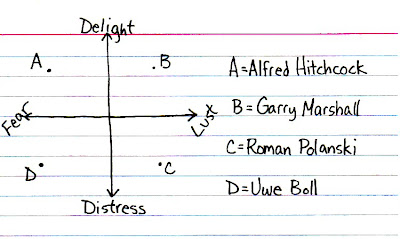 Delight
A
B
A=Alfred Hitchcock
B=Garry Marshall
Fear
Lust
C=Roman Polanski
D
C
D=Uwe Boll
Distress